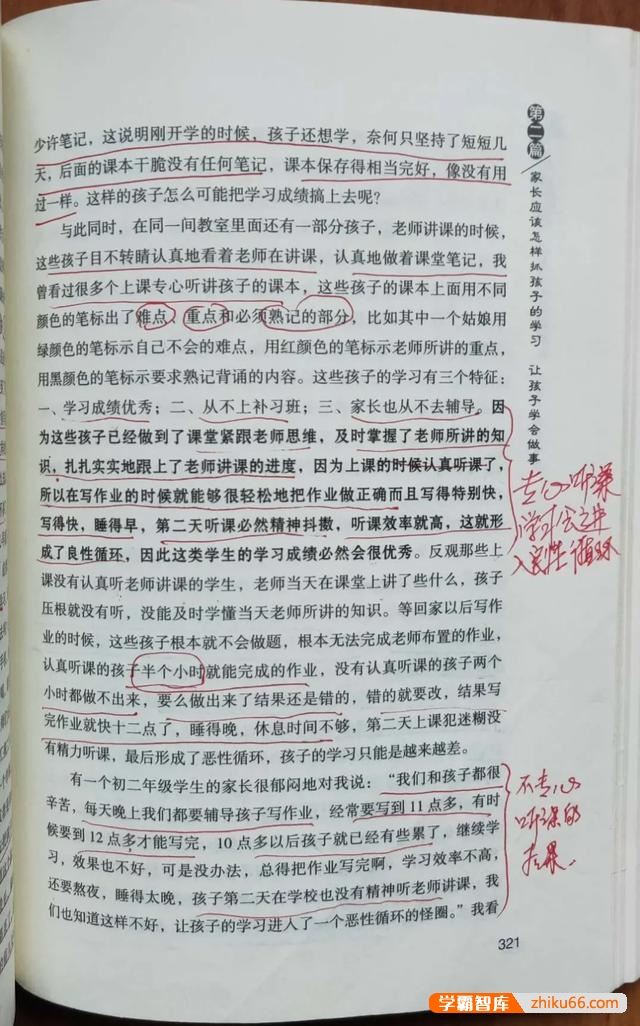 少许笔记，这说明刚开学的时候，孩子还想学，奈何只坚持了短短几
天，后面的课本干脆没有任何笔记，课本保存得相当完好，像没有用
过一样。这样的孩子怎么可能把学习成绩搞上去呢？
与此同时，在同一间教室里面还有一部分孩子，老师讲课的时候，
这些孩子目不转睛认真地看着老师在讲课，认真地做着课堂笔记，我
曾看过很多个上课专心听讲孩子的课本，这些孩子的课本上面用不同
颜色的笔标出了难点、重点和必须熟记的部分，比如其中一个姑娘用
绿颜色的笔标示自己不会的难点，用红颜色的笔标示老师所讲的重点，
用黑颜色的笔标示要求熟记背诵的内容。这些孩子的学习有三个特征：
一、学习成绩优秀；二、从不上补习班；三、家长也从不去辅导。因
为这些孩子已经做到了课堂紧跟老师思维，及时掌握了老师所讲的知
识，扎扎实实地跟上了老师讲课的进度，因为上课的时候认真听课了，
所以在写作业的时候就能够很轻松地把作业做正确而且写得特别快，
写得快，睡得早，第二天听课必然精神抖擞，听课效率就高，这就形
成了良性循环，因此这类学生的学习成绩必然会很优秀。反观那些上
课没有认真听老师讲课的学生，老师当天在课堂上讲了些什么，孩子
压根就没有听，没能及时学懂当天老师所讲的知识。等回家以后写作
业的时候，这些孩子根本就不会做题，根本无法完成老师布置的作业，
认真听课的孩子半个小时就能完成的作业，没有认真听课的孩子两个
小时都做不出来，要么做出来了结果还是错的，错的就要改，结果写
完作业就快十二点了，睡得晚，休息时间不够，第二天上课犯迷糊没
有精力听课，最后形成了恶性循环，孩子的学习只能是越来越差。
有一个初二年级学生的家长很郁闷地对我说：“我们和孩子都很
辛苦，每天晚上我们都要辅导孩子写作业，经常要写到11点多，有时
候要到12点多才能写完，10点多以后孩子就已经有些累了，继续学
习，效果也不好，可是没办法，总得把作业写完啊，学习效率不高，
还要熬夜，睡得太晚，孩子第二天在学校也没有精神听老师讲课，我
们也知道这样不好，让孩子的学习进入了一个恶性循环的怪圈。”我看
第二篇
家长应该怎样抓孩子的学习 让孩子学会做事
专心听课
学习会进
入良性循环
不专心
听课的
后果.
321
学霸智库
zhiku66.com